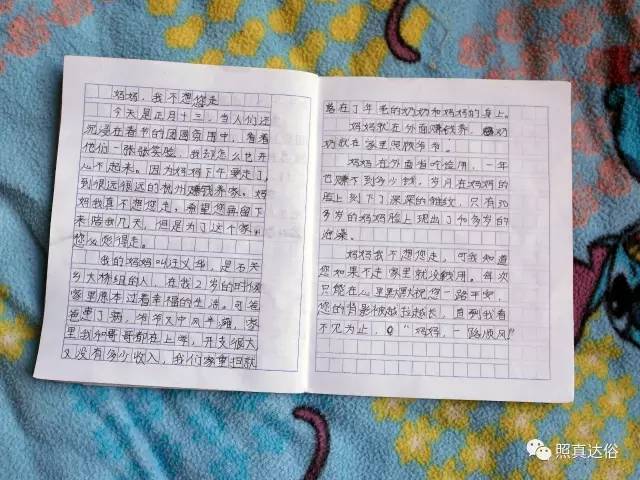 妈妈，我不想您走
今天是正月十三，当人们还
沉浸在春节的团圆氛围中，看着
他们一张张笑脸，我却怎么也开
心不起来。因为妈妈下午要走了，
到很远很远的杭州赚钱养家。妈
妈我真不想您走。希望您再留下
来陪我几天，但是为了这个家，
您必须得走。
我的妈妈叫汪义华，是石关
乡大林组的人，在我2岁的时候
家里原本过着幸福的生活，可爸
爸患了病，爷爷又中风了瘫，家
里我和哥哥都在上学，开支很大
又没有多少收入，我们家重担就
落在了年老的奶奶和妈妈的身上。
妈妈就在外面赚钱养，奶
奶就在家里照顾爷爷。
妈妈在外面省吃俭用，一年
也赚不到多少钱，岁月在妈妈的
脸上刻下了深深的皱纹，只有30
多岁的妈妈脸上现出了40多岁的
沧桑。
妈妈我不想您走，可我知道
您如果不走家里就没钱用。每次
只能在心里默默祝您一路平安，
您的背影被越拉越长，直到我看
不见为止，“妈妈，一路顺风”
照真达俗